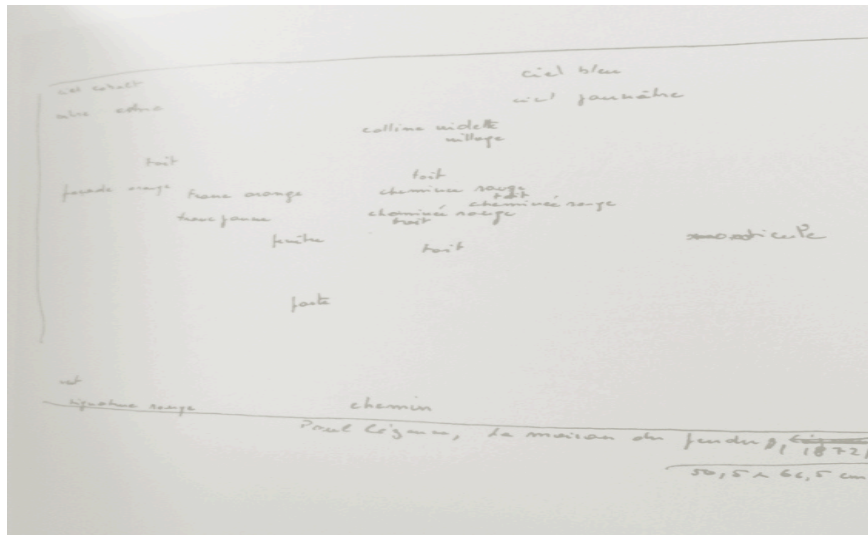 ciel cobalt
ciel bleu
ciel jaunâtre
colline violette
village
toit
toit
façade orange
tronc orange
cheminée rouge
toit
cheminée rouge
tronc jaune
cheminée rouge
toit
fenêtre
toit
monticule
porte
signature rouge
chemin
Paul Cézanne, La maison du pendu, 1872
50,5 x 66,5 cm